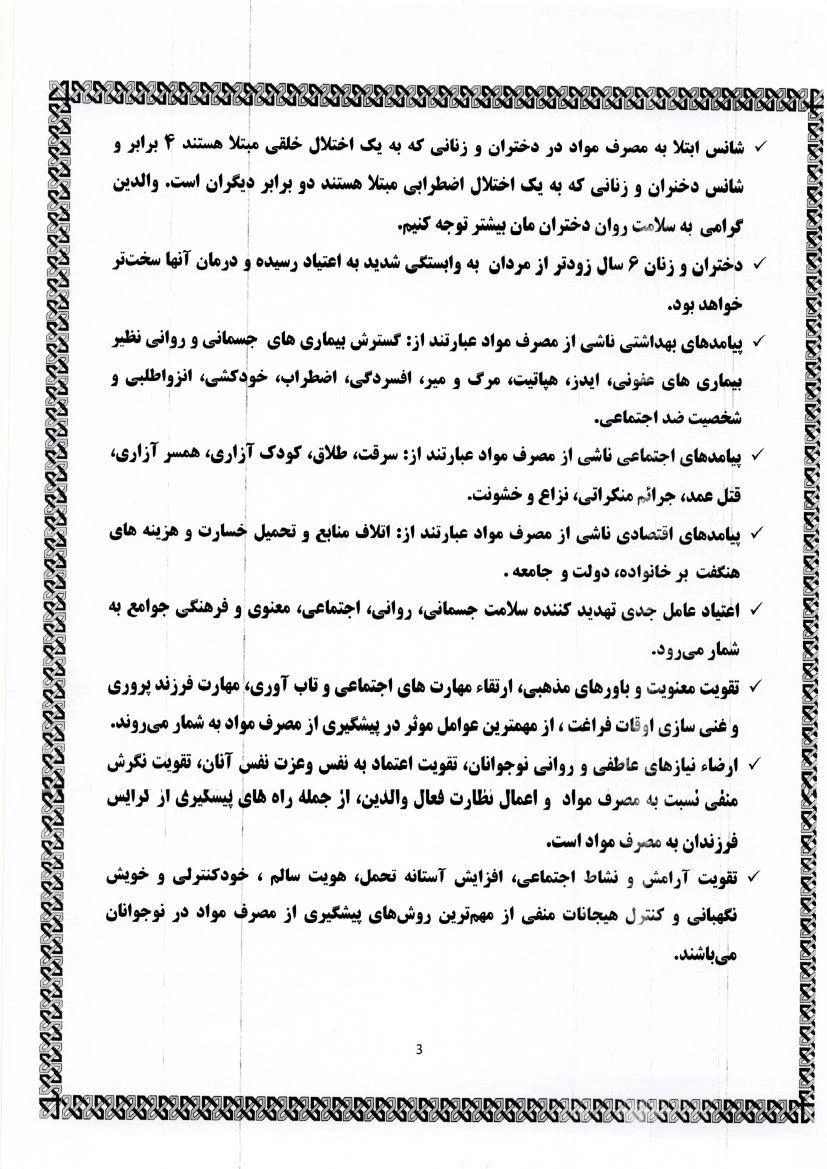 ✓ شانس ابتلا به مصرف مواد در دختران و زنانی که به یک اختلال خلقی مبتلا هستند ۴ برابر و
شانس دختران و زنانی که به یک اختلال اضطرابی مبتلا هستند دو برابر دیگران است. والدین
گرامی به سلامت روان دختران مان بیشتر توجه کنیم.
✓ دختران و زنان ۶ سال زودتر از مردان به وابستگی شدید به اعتیاد رسیده و درمان آنها سخت‌تر
خواهد بود.
✓ پیامدهای بهداشتی ناشی از مصرف مواد عبارتند از: گسترش بیماری های جسمانی و روانی نظیر
بیماری های عفونی، ایدز، هپاتیت، مرگ و میر، افسردگی، اضطراب، خودکشی، انزواطلبی و
شخصیت ضد اجتماعی.
✓ پیامدهای اجتماعی ناشی از مصرف مواد عبارتند از: سرقت، طلاق، کودک آزاری، همسر آزاری،
قتل عمد، جرائم منکراتی، نزاع و خشونت.
✓ پیامدهای اقتصادی ناشی از مصرف مواد عبارتند از: اتلاف منابع و تحمیل خسارت و هزینه های
هنگفت بر خانواده، دولت و جامعه .
✓ اعتیاد عامل جدی تهدید کننده سلامت جسمانی، روانی، اجتماعی، معنوی و فرهنگی جوامع به
شمار می‌رود.
✓ تقویت معنویت و باورهای مذهبی، ارتقاء مهارت های اجتماعی و تاب آوری، مهارت فرزند پروری
و غنی سازی اوقات فراغت ، از مهمترین عوامل موثر در پیشگیری از مصرف مواد به شمار می‌روند.
✓ ارضاء نیازهای عاطفی و روانی نوجوانان، تقویت اعتماد به نفس وعزت نفس آنان، تقویت نگرش
منفی نسبت به مصرف مواد و اعمال نظارت فعال والدین، از جمله راه های پیشگیری از گرایش
فرزندان به مصرف مواد است.
✓ تقویت آرامش و نشاط اجتماعی، افزایش آستانه تحمل، هویت سالم ، خودکنترلی و خویش
نگهبانی و کنترل هیجانات منفی از مهم‌ترین روش‌های پیشگیری از مصرف مواد در نوجوانان
می‌باشند.
3